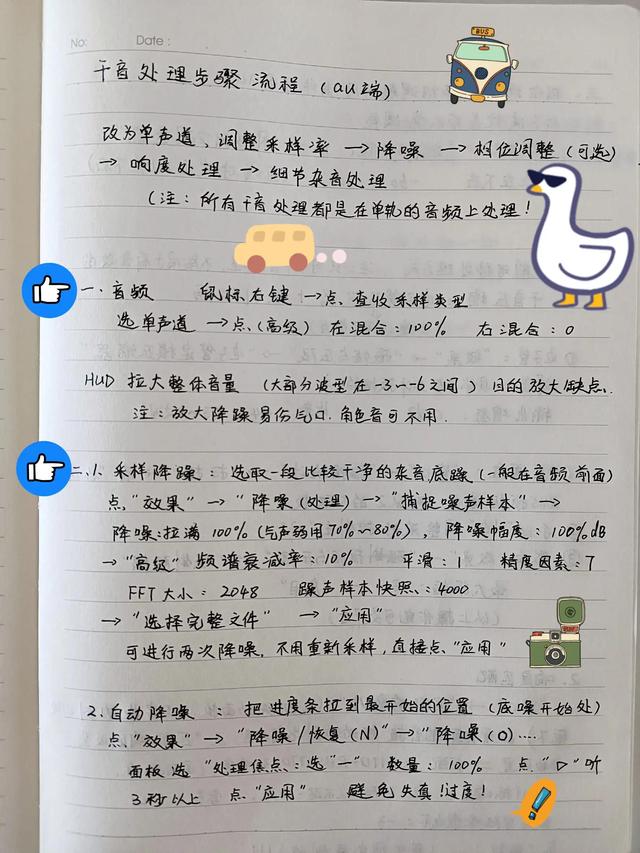 No:   Date:
BUS
干音处理步骤流程（au端）
改为单声道，调整采样率 → 降噪 → 相位调整（可选）
→ 响度处理 → 细节杂音处理
（注：所有干音处理都是在单轨的音频上处理！
一、音频 鼠标右键 → 点、查收采样类型
选单声道 → 点、(高级) 在混合：100% 右混合：0
HUD 拉大整体音量（大部分波型在-3~-6之间）目的放大缺点、
注：放大降躁易伤气口，角色音可不用.
二、1、采样降躁：选取一段比较干净的杂音底躁(一般在音频前面)
点、"效果" → "降噪(处理) → "捕捉噪声样本" →
降噪:拉满100%(气声弱用70%~80%)，降噪幅度：100%dB
→ "高级" 频谱衰减率：10% 平滑：1 精度因素：7
FFT大小：2048 躁声样本快照：4000
→ "选择完整文件" → "应用"
可进行两次降噪，不用重新采样，直接点、"应用"
2.自动降噪：把进度条拉到最开始的位置(底噪开始处)
点、"效果" → "降噪/恢复(N)" → "降噪(O)....
面板选"处理焦点：选"一" 数量：100% 点、"▷"听
3秒以上 点、"应用" 避免失真!过度!